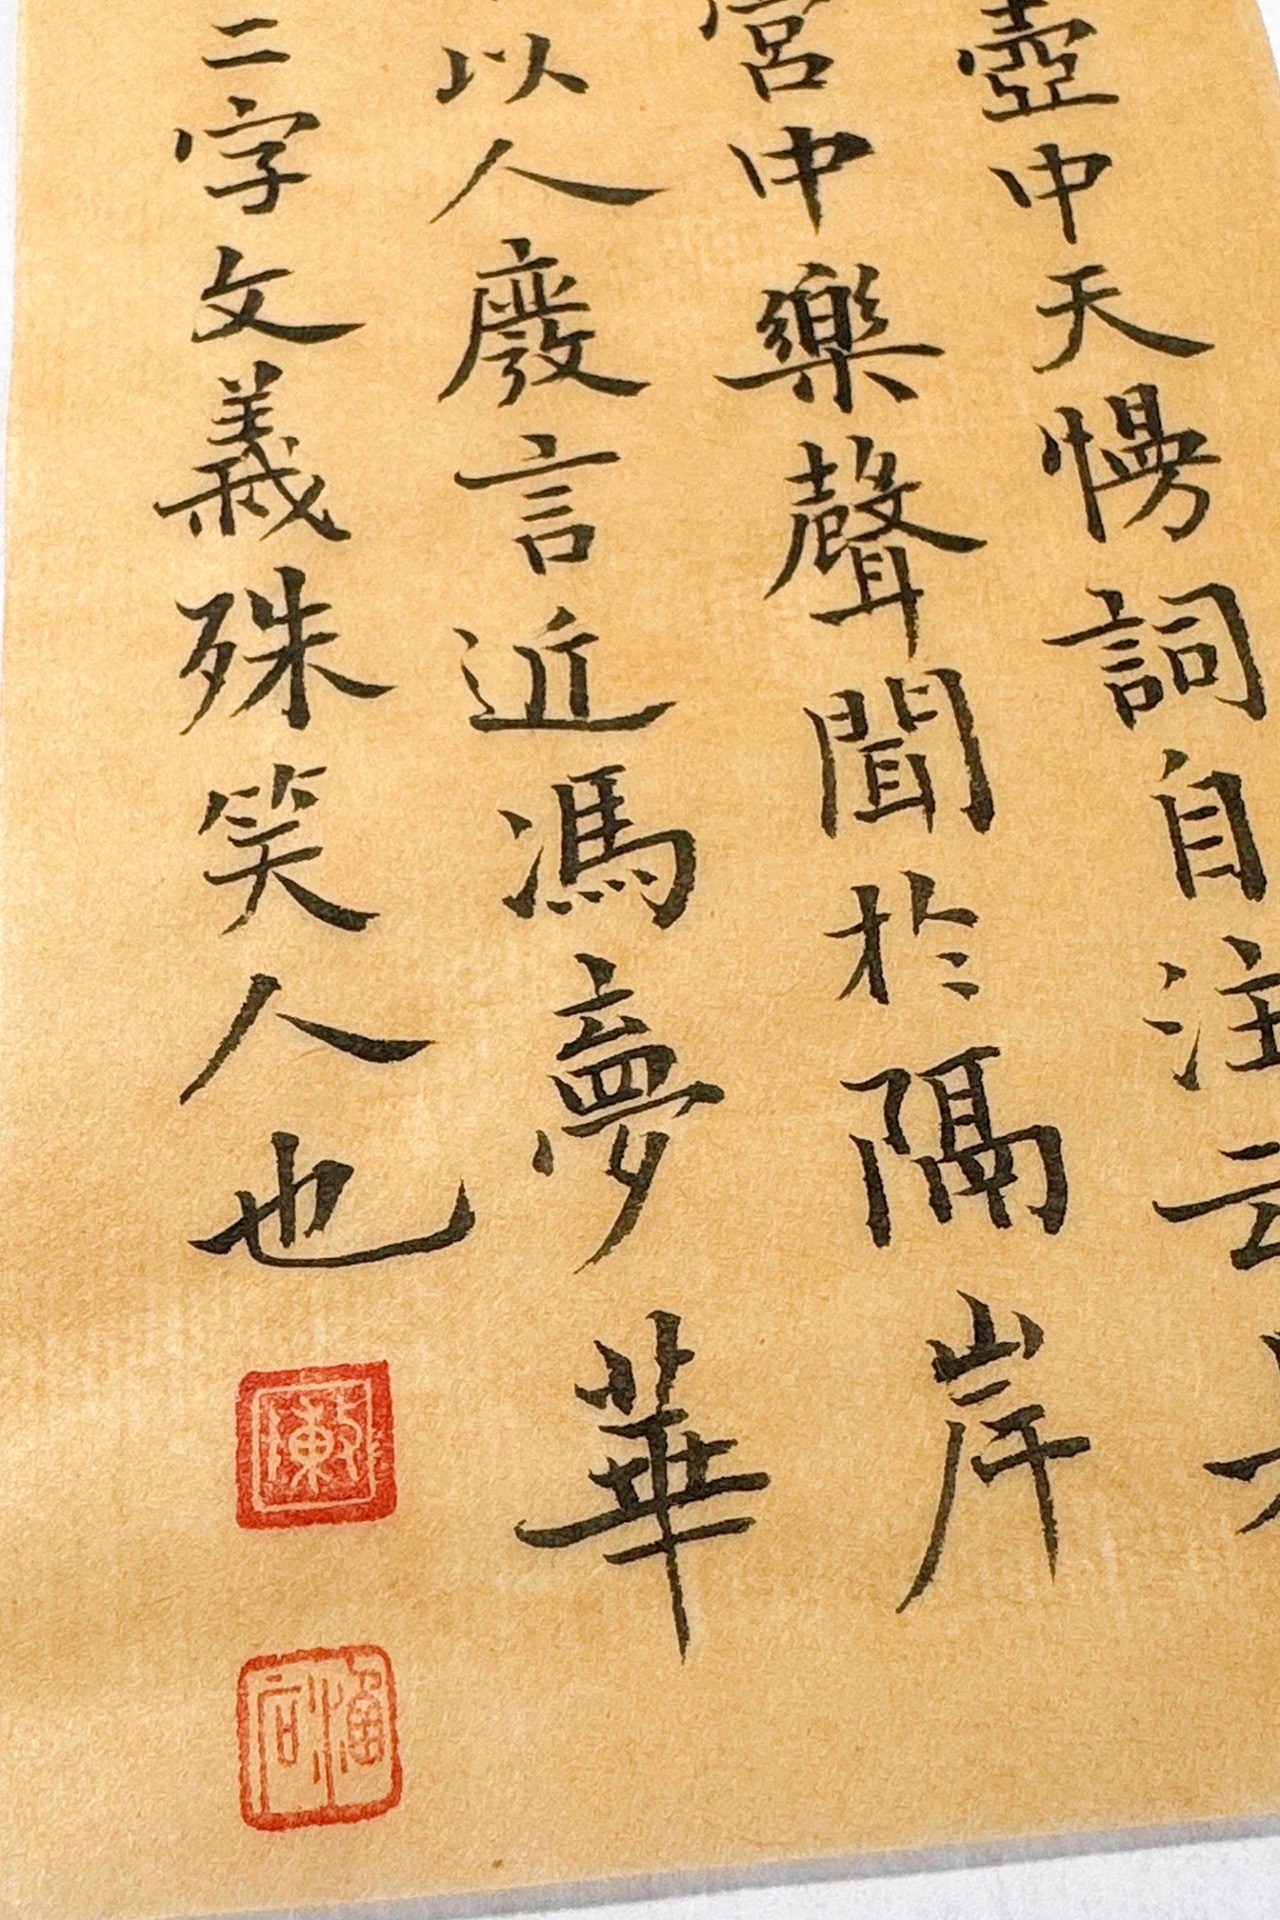 壺中天慢詞自注云
宮中樂聲聞於隔岸
以人廢言近馮夢華
二字文義殊笑人也
陳